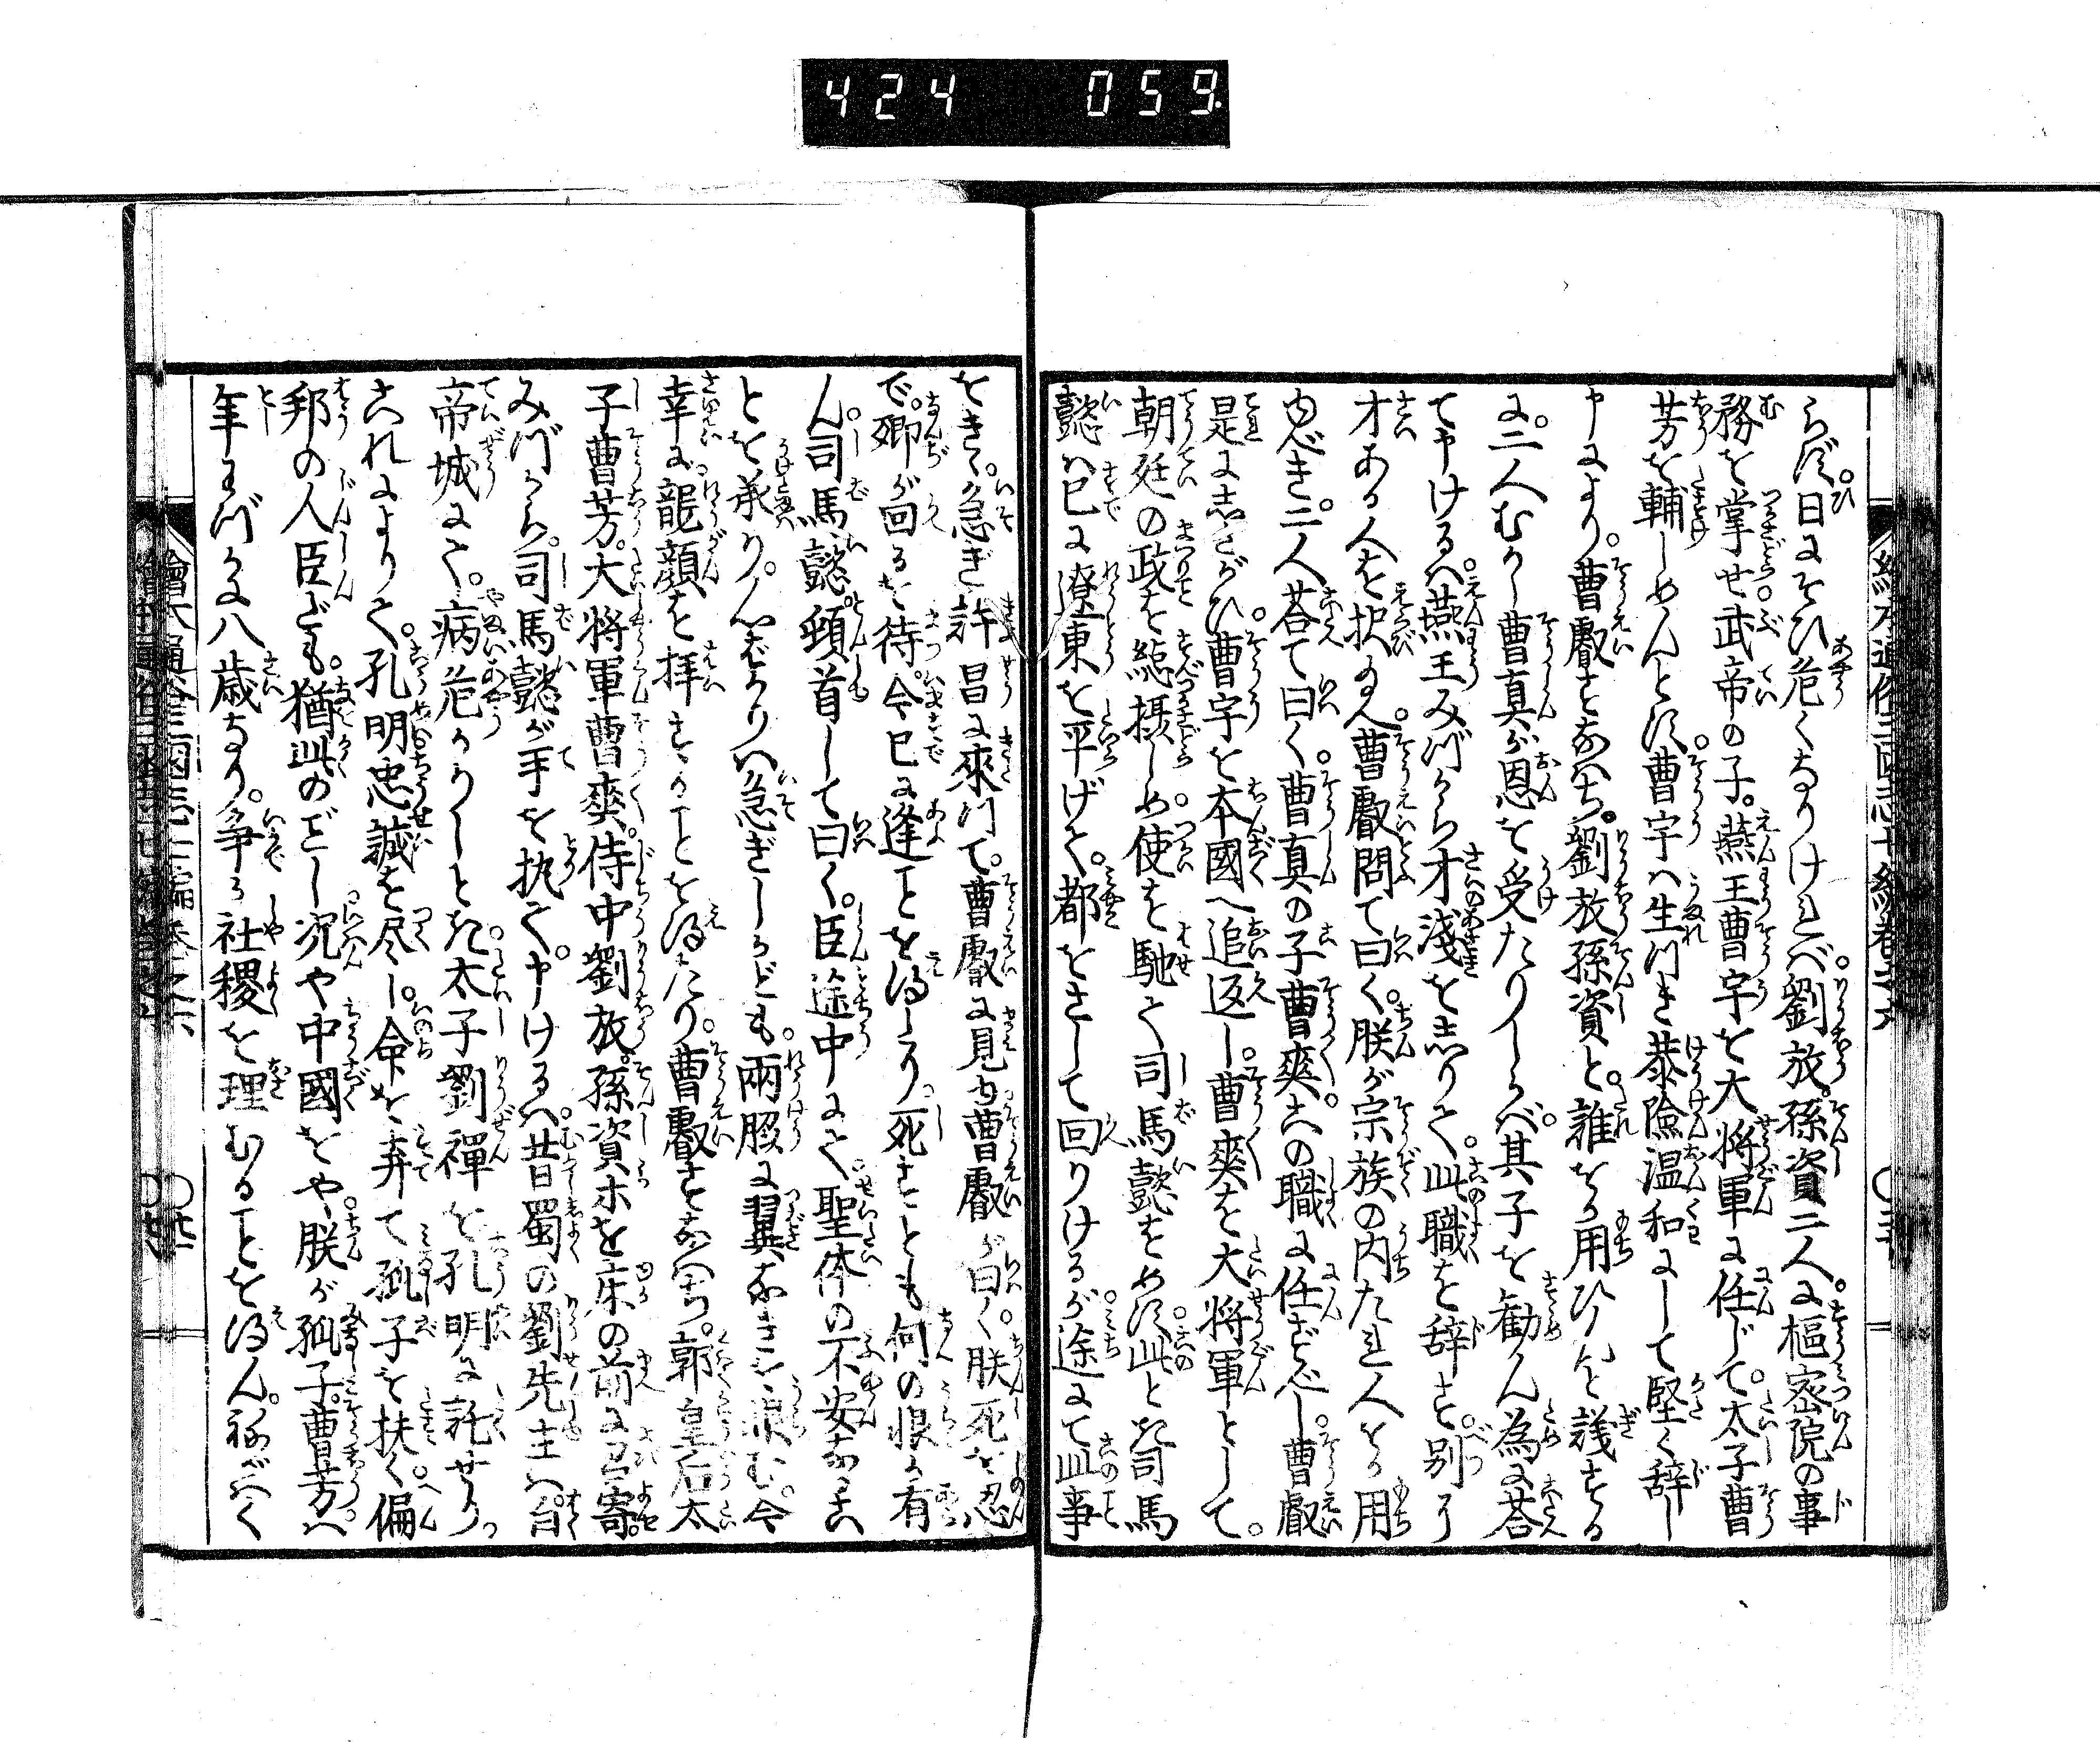 424 059
らず。日にそひ危くなりければ。劉放。孫資二人に。樞密院の事
務を掌せ。武帝の子。燕王曹宇を大将軍に任じて。太子曹
芳を輔しめんとす。曹宇ハ生つき恭儉温和にして堅く辞し
申により。曹叡すなはち。劉放孫資と。誰をか用ひんと議する
に。二人むかし曹真が恩を受たりしかバ。其子を勧ん為に荅
て申けるハ。燕王みづから才浅をしりて。此職を辞す。別に
才ある人を択給へ。曹叡問て曰く。朕が宗族の内たれ人をか用
ゆべき。二人荅て曰く。曹真の子曹爽。この職に任ずべし。曹叡
是にしたがひ。曹宇を本國へ追返し。曹爽を大将軍として。
朝廷の政を総摂しめ。使を馳て司馬懿をめす。此とき司馬
懿ハ已に遼東を平げて。都をさして回りけるが。途にて此事
をきゝ。急ぎ許昌に來つて。曹叡に見ゆ。曹叡が曰く。朕死を忍
で。卿が回るを待。今已に逢ことを得たり。死すとも何の恨か有
ん。司馬懿。頓首して曰く。臣途中にて。聖体の不安なるこ
とを承り。心ばかりハ急ぎしかども。兩脇に翼なきを恨む。今
幸に。龍顔を拝することを得たり。曹叡すなハち。郭皇后太
子曹芳。大将軍曹爽。侍中劉放。孫資ホを床の前に召寄。
みづから。司馬懿が手を執て。申けるハ。昔蜀の劉先主ハ。白
帝城にて。病危かりしとき。太子劉禪を孔明に託せり。
これによりて。孔明忠誠を尽し。命を弃て孤子を扶く。偏
邦の人臣ども。猶此のごとし。况や中國をや。朕が孤子。曹芳ハ
年わづかに八歳なり。争か社稷を理むることを得ん。ねがハく